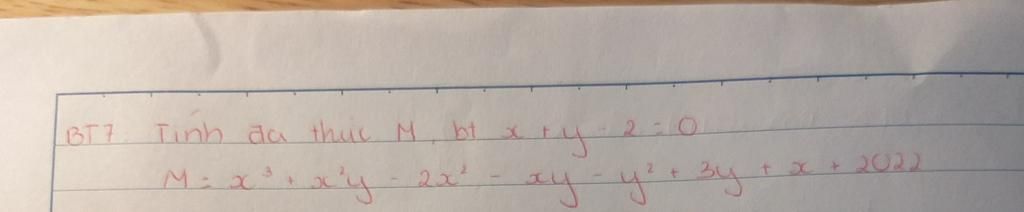 BT7. Tính đa thức M, bt x + y - 2 = 0
M = x³ + x²y - 2x² - xy - y² + 3y + x + 2022